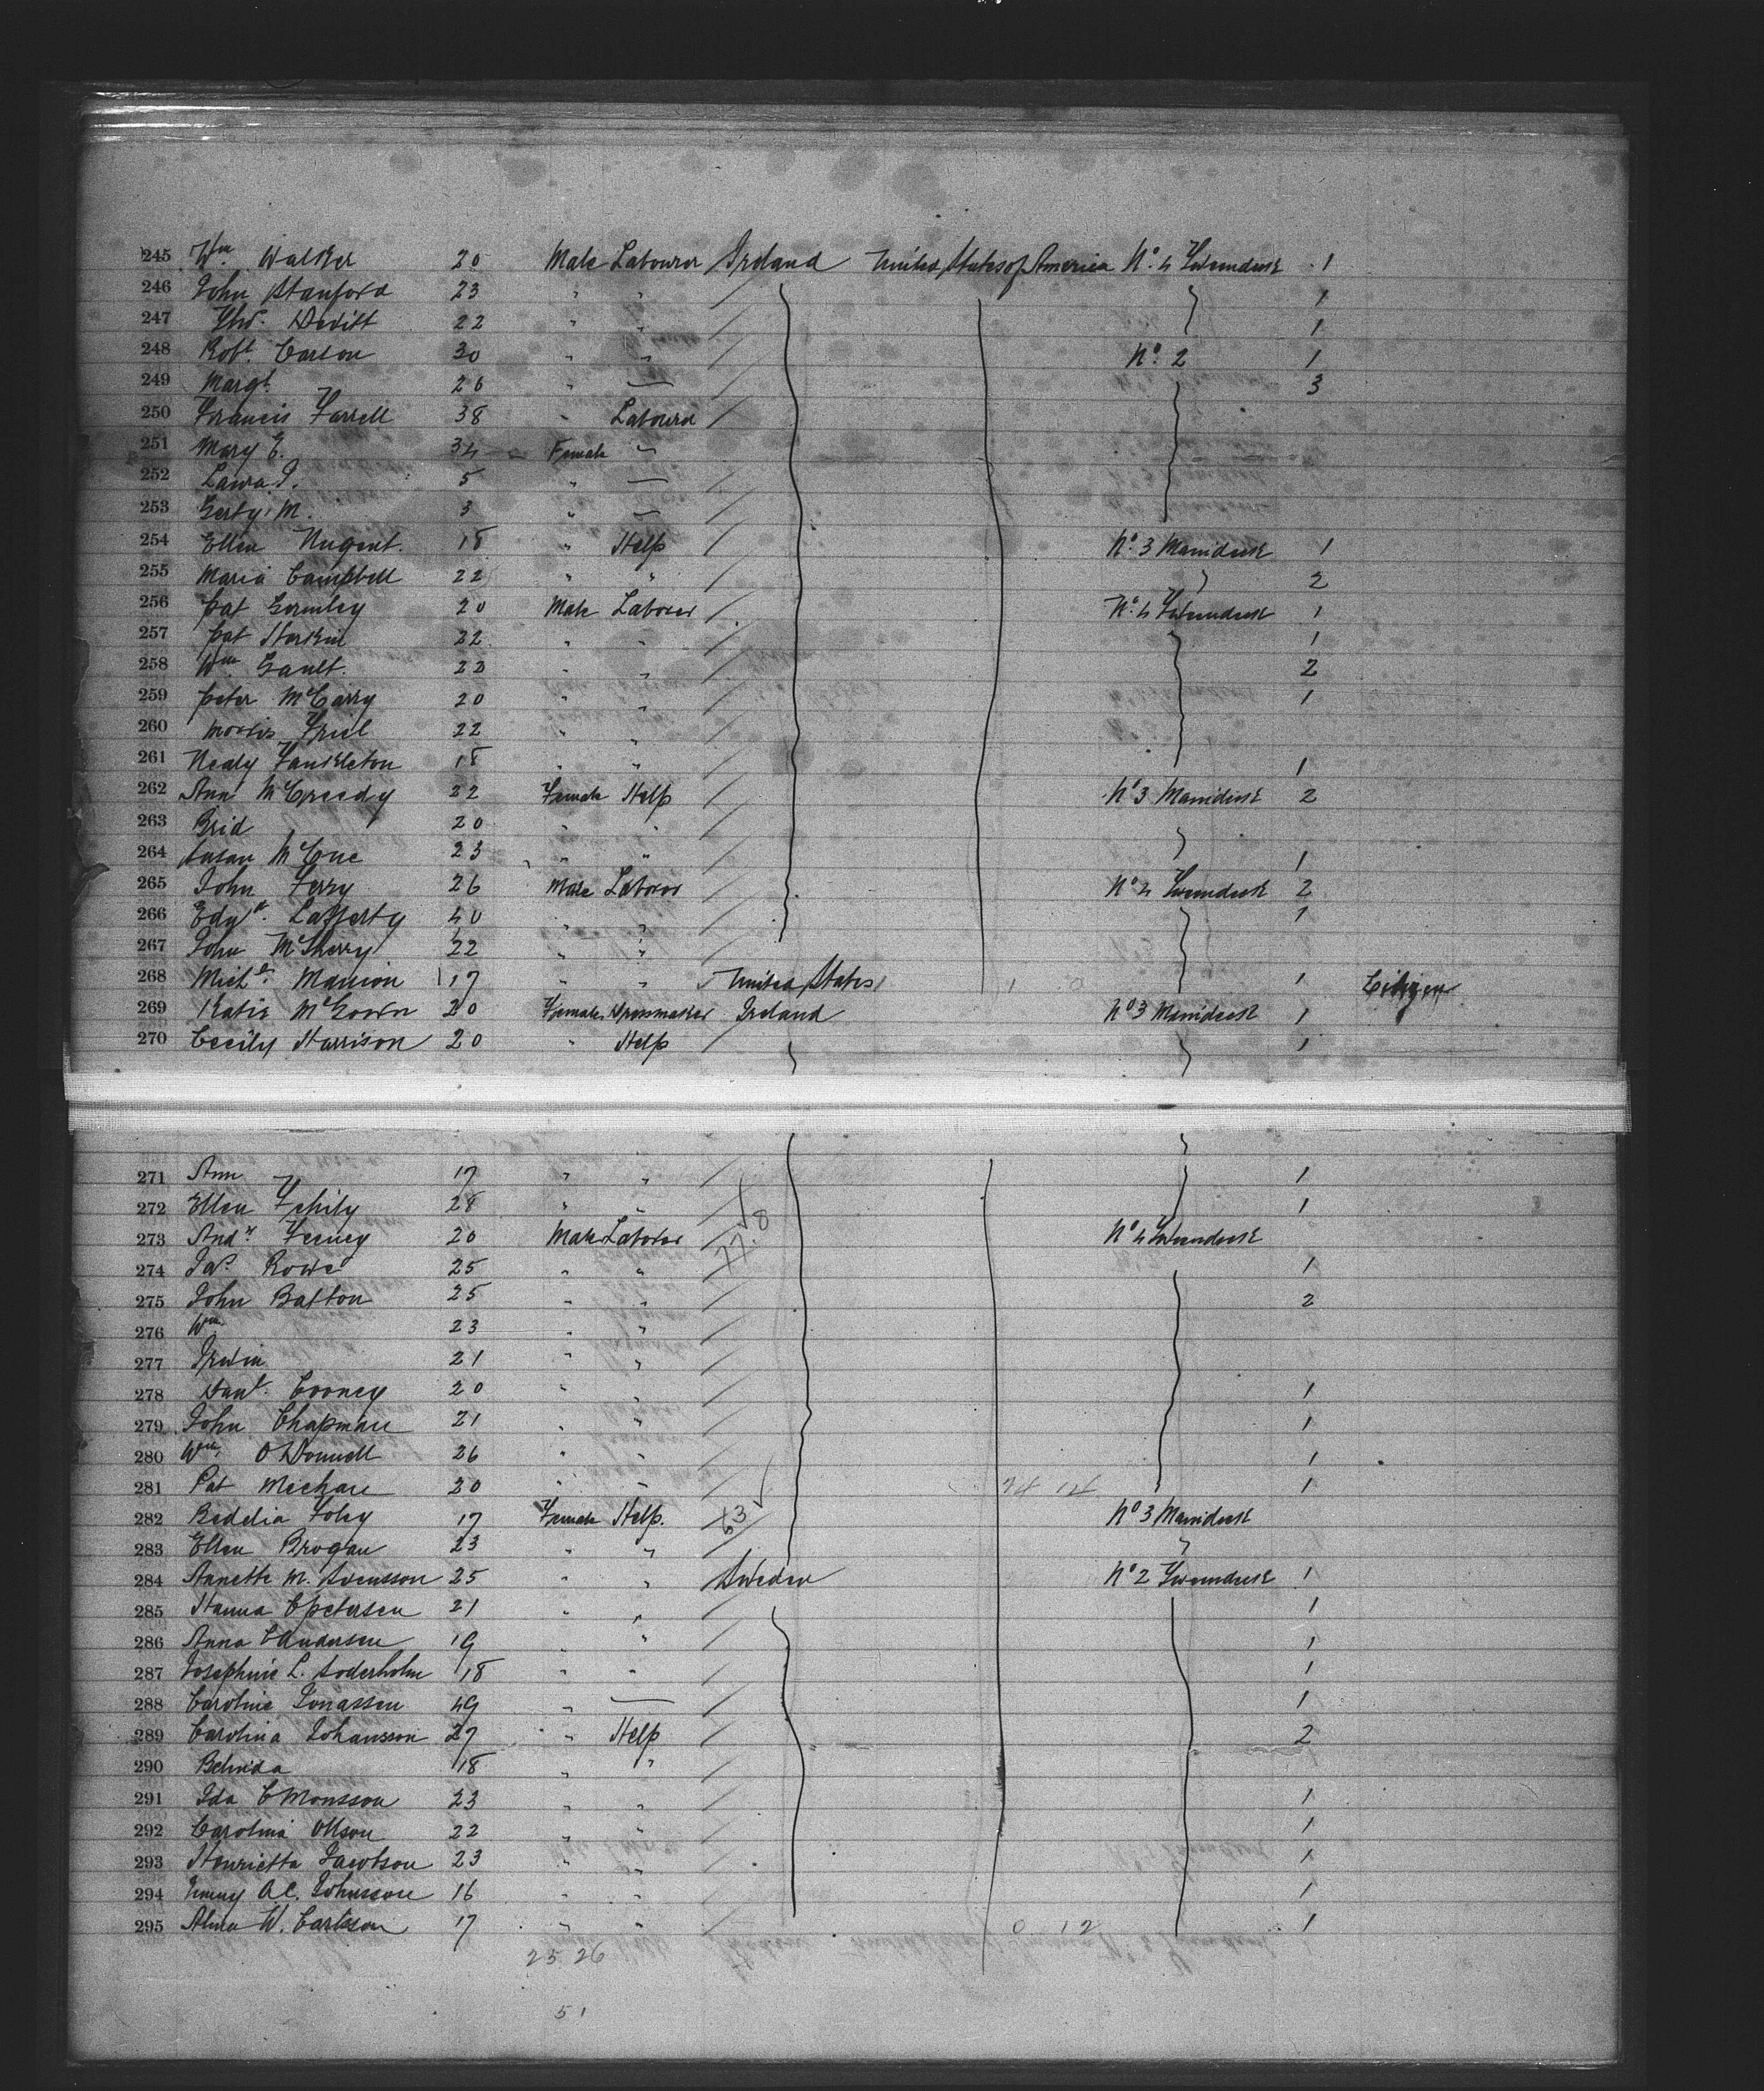 245 Wm. Walker 20 Male Labourer Ireland United States of America No. 4 Tweendeck 1
246 John Stanford 23 " " / 1
247 Thos. Devitt 22 " " / 1
248 Robt. Carson 30 " " / No. 2 1
249 Margt. 26 " — / 3
250 Francis Farrell 38 " Labourer /
251 Mary E. 34 Female " /
252 Laura J. 5 " — /
253 Gerty M. 3 " — /
254 Ellen Nugent. 18 " Help / No. 3 Maindeck 1
255 Maria Campbell 22 " " / 2
256 Pat Gormley 20 Male Laborer / No. 4 Tweendeck 1
257 Pat Harkin 22 " " / 1
258 Wm. Gault. 22 " " / 2
259 Peter McGarry 20 " " / 1
260 Morris Friel 22 " " /
261 Nealy 18 " " / 1
262 Ann McCreedy 22 Female Help / No 3 Maindeck 2
263 Brid 20 " " /
264 Susan McCue 23 " " / 1
265 John Ferry 26 Male Laborer / No 4 Tweendeck 2
266 Edwd. Lafferty 40 " " / 1
267 John McSherry 22 " " /
268 Michl. Mannion 17 " " United States 1 0 1 Citizen
269 Katie McGovrn 20 Female Dressmaker Ireland No 3 Maindeck 1
270 Cecily Harrison 20 " Help / 1
271 Ann 17 " " / 1
272 Ellen Fehily 28 " " / 1
273 Andw. Feeney 20 Male Laborer / 77.8 No 4 Tweendeck
274 Jas. Rowe 25 " " / 1
275 John Batton 25 " " / 2
276 Wm. 23 " " /
277 Irwin 21 " " /
278 Danl. Cooney 20 " " / 1
279 John Chapman 21 " " / 1
280 Wm. O'Donnell 26 " " / 1
281 Pat 20 " " / 74 14 1
282 Bedelia Foley 17 Female Help. / 63 No 3 Maindeck
283 Ellen Brogan 23 " " /
284 Annette M. Svensson 25 " " Sweden No 2 Tweendeck 1
285 Hanna C Petersen 21 " " / 1
286 Anna C Andersen 19 " " / 1
287 Josephine L. Soderholm 18 " " / 1
288 Caroline Jonassen 49 " — / 1
289 Carolina Johansson 27 " Help / 2
290 Belinda 18 " " /
291 Ida C Monsson 23 " " / 1
292 Carolina Olsson 22 " " / 1
293 Henrietta Jacobson 23 " " / 1
294 A.C. Johnsson 16 " " / 1
295 Alma W. Carlsson 17 " " / 0 12 1
25 26
51